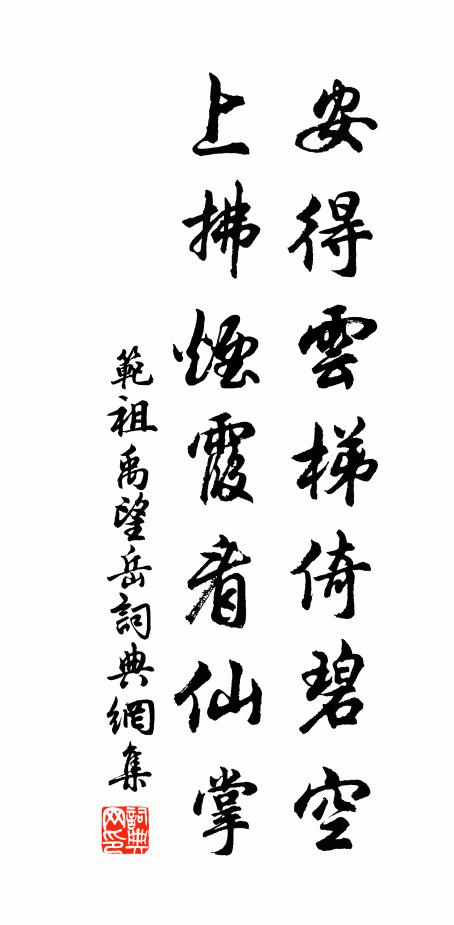 安得雲梯倚碧空
上拂煙霞看仙掌
範祖禹望岳詞典網集
詞典
网印